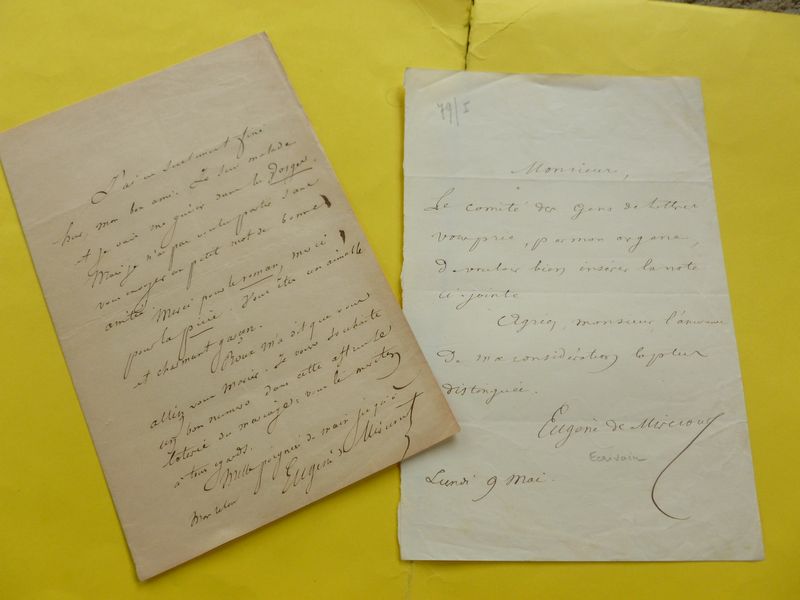 J'ai su seulement
hier, mon bon ami. Je suis malade
et je vais me guérir dans les Vosges.
Mais je n'ai pas voulu partir sans
vous envoyer un petit mot de bonne
amitié. Merci pour le roman, merci
pour la pièce. Vous êtes un aimable
et charmant garçon.
m'a dit que vous
alliez vous marier. Je vous souhaite
un bon numéro dans cette affreuse
loterie du mariage; vous le méritez
à tous égards.
Mille poignées de main
Eugène de Mirecourt
79/I
Monsieur,
Le comité des gens de lettres
vous prie, par mon organe,
de vouloir bien insérer la note
ci-jointe
Agréez, monsieur, l'assurance
de ma considération la plus
distinguée.
Eugène de Mirecourt
Ecrivain
Lundi 9 Mai.